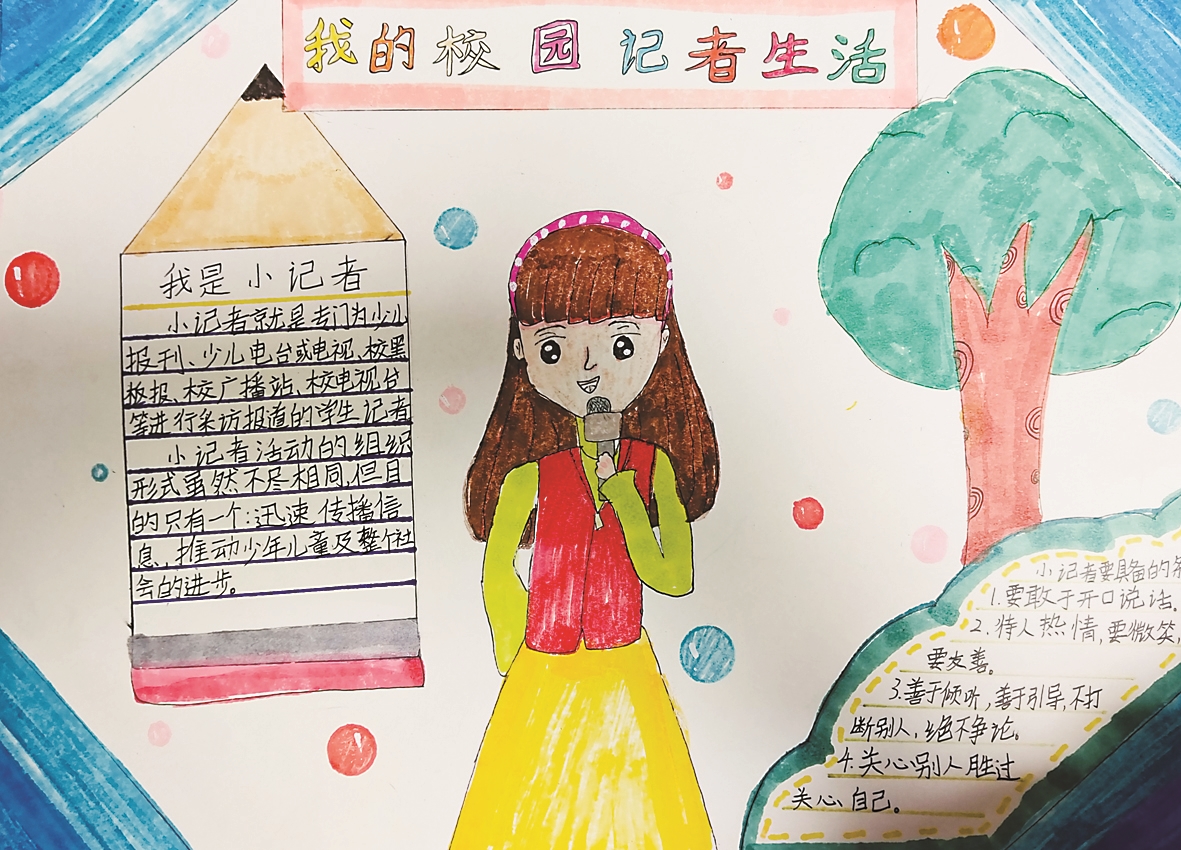 我的校园记者生活
我是小记者
小记者就是专门为少儿
报刊、少儿电台或电视、校黑
板报、校广播站、校电视台
等进行采访报道的学生记者
小记者活动的组织
形式虽然不尽相同,但目
的只有一个:迅速传播信
息,推动少年儿童及整个社
会的进步。
小记者要具备的
1.要敢于开口说话。
2.待人热情,要微笑,
要友善。
3.善于倾听,善于引导,不打
断别人,绝不争论。
4.关心别人胜过
关心自己。